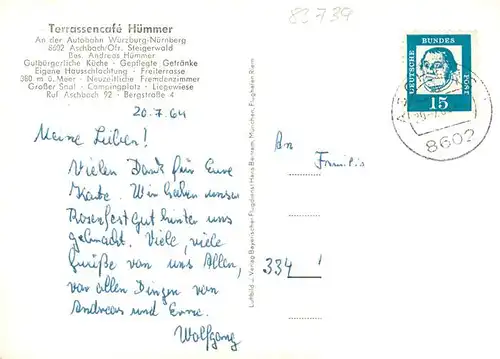 83739
Terrassencafé Hümmer
An der Autobahn Würzburg-Nürnberg
8602 Aschbach/Ofr. Steigerwald
Bes. Andreas Hümmer
Gutbürgerliche Küche - Gepflegte Getränke
Eigene Hausschlachtung - Freiterrasse
380 m ü. Meer - Neuzeitliche Fremdenzimmer
Großer Saal - Campingplatz - Liegewiese
Ruf Aschbach 92 - Bergstraße 4
20.7.64
Meine Lieben!
Vielen Dank für Eure
Karte. Wir haben unser
Rosenfest gut hinter uns
gebracht. Viele, viele
Grüße von uns Allen,
vor allen Dingen von
Andreas und Erna.
Wolfgang
Luftbild - Verlag Bayerischer Flugdienst Hans Bertram, München, Flughafen Riem
DEUTSCHE
BUNDES
POST
15
8602
An
Familie
334